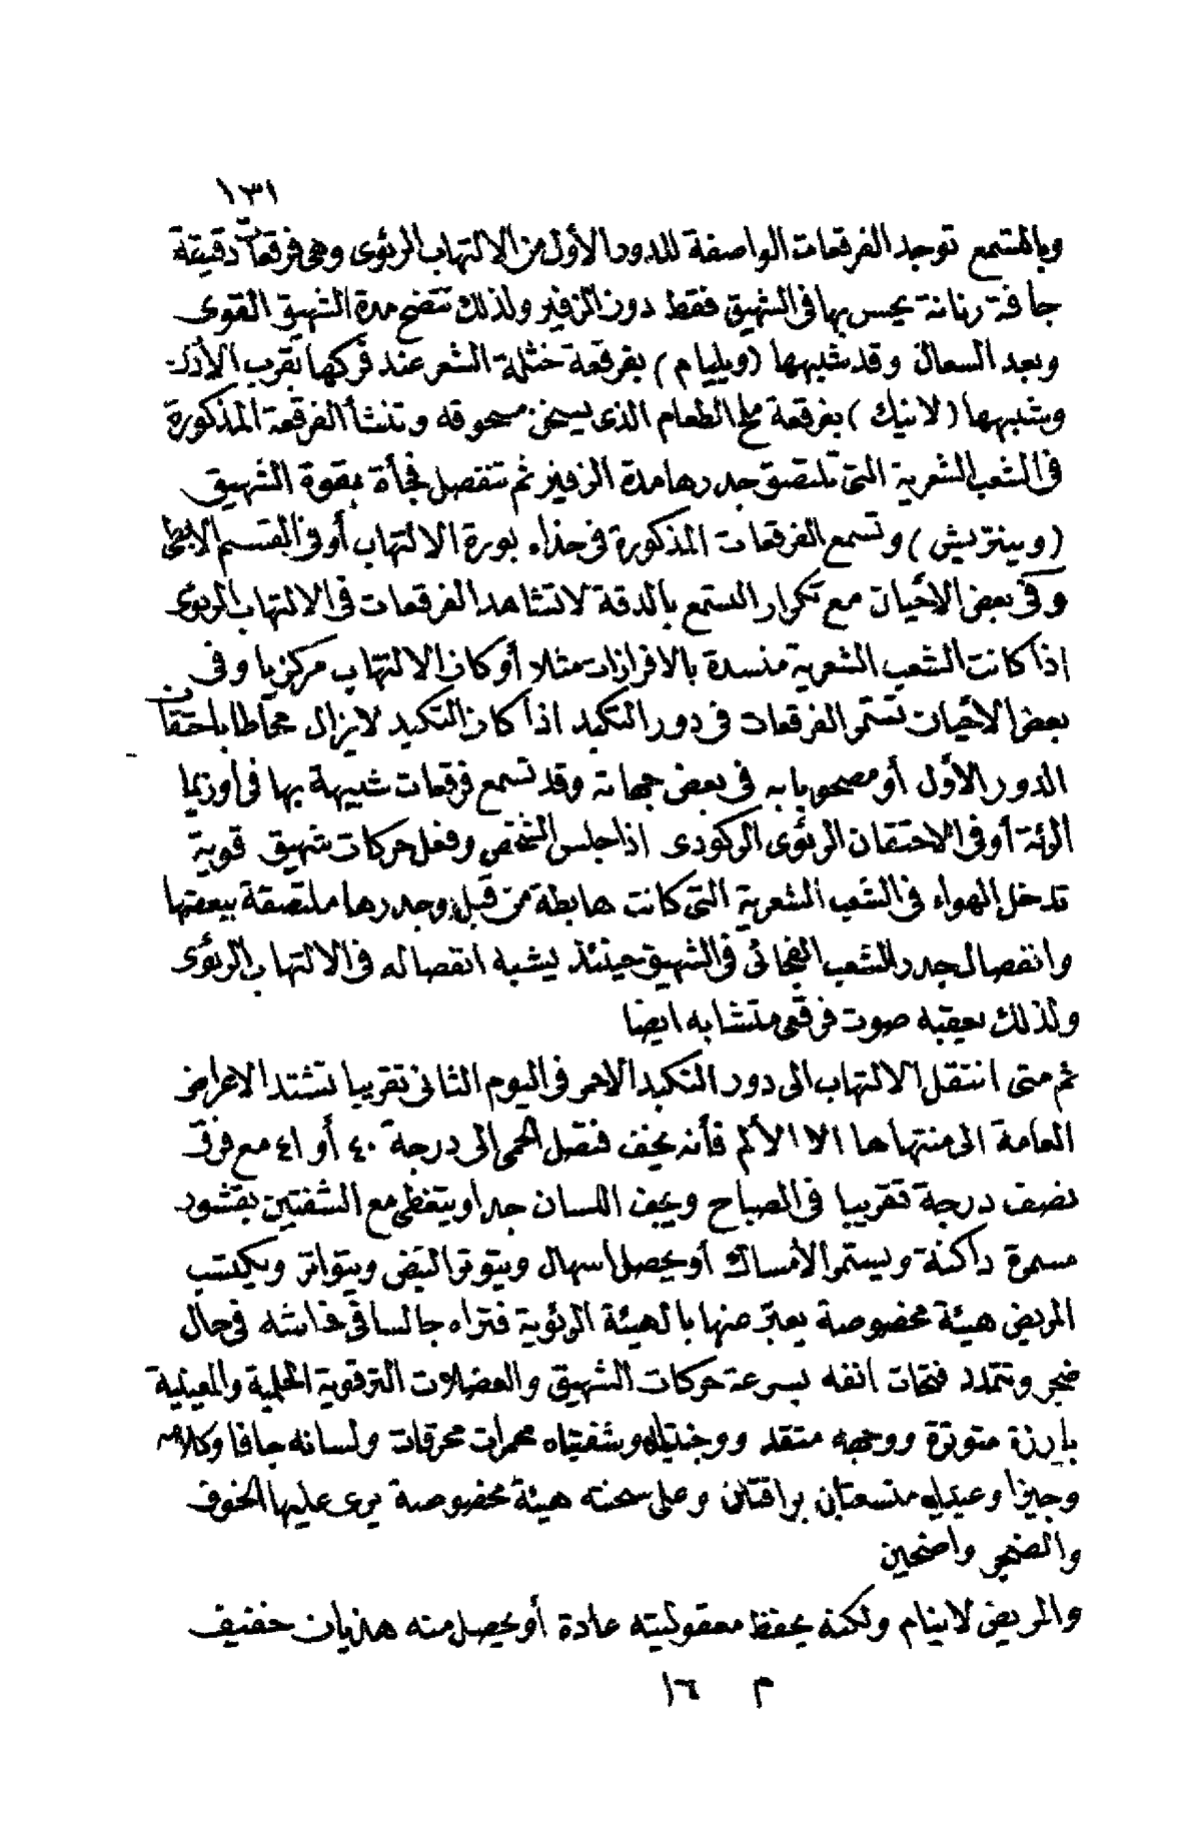 ١٣١
وبالتسمع توجد الفرقعات الواصفة للدور الأول من الالتهاب الرئوى وهى فرقعات دقيقة
جافة رنانة يحس بها فى الشهيق فقط دون الزفير ولذلك تتضح مدة الشهيق القوى
وبعد السعال وقد شبهها (ويليام) بفرقعة خثلة الشعر عند فركها بقرب الأذن
وشبهها (لانيك) بفرقعة ملح الطعام الذى يسخن مسحوقه وتنشأ الفرقعة المذكورة
فى الشعب الشعرية التى تلتصق جدرها مدة الزفير ثم تنفصل فجأة بقوة الشهيق
(وينتريش) وتسمع الفرقعات المذكورة فى حذاء بورة الالتهاب أو فى القسم الابطى
وفى بعض الأحيان مع تكرار التسمع بالدقة لا تشاهد الفرقعات فى الالتهاب الرئوى
اذا كانت الشعب الشعرية منسدة بالافرازات مثلا أو كان الالتهاب مركزيا وفى
بعض الاحيان تستمر الفرقعات فى دور التكبد اذا كان التكبد لايزال محاطا باحتقان
الدور الأول أو مصحوبا به فى بعض جهاته وقد تسمع فرقعات شبيهة بها فى أوزيما
الرئة أو فى الاحتقان الرئوى الركودى اذا جلس الشخص وفعل حركات شهيق قوية
تدخل الهواء فى الشعب الشعرية التى كانت هابطة من قبل وجدرها ملتصقة ببعضها
وانفصال جدر الشعب الفجائى فى الشهيق حينئذ يشبه انفصاله فى الالتهاب الرئوى
ولذلك يعقبه صوت فرقعى متشابه ايضا
ثم متى انتقل الالتهاب الى دور التكبد الاحمر فى اليوم الثانى تقريبا تشتد الاعراض
العامة الى منتهاها الا الألم فأنه يخف فتصل الحمى الى درجة ٤٠ أو ٤١ مع فرق
نصف درجة تقريبا فى الصباح ويجف اللسان جدا ويتغطى مع الشفتين بقشور
مسمرة داكنة ويستمر الأمساك أو يحصل اسهال ويتوتر النبض ويتواتر ويكتسب
المريض هيئة مخصوصة يعبر عنها بالهيئة الرئوية فتراه جالسا فى فراشه فى حال
ضجر وتتمدد فتحات انفه بسرعة حركات الشهيق والعضلات الترقوية الحلمية والمعينية
بارزة متوترة ووجهه متقد ووجنتيه وشفتياه محمرات محرقات ولسانه جافا وكلامه
وجيزا وعينيه متسعتان براقتان وعلى سحنته هيئة مخصوصة يرى عليها الخوف
والضجر واضحين
والمريض لاينام ولكنه يحفظ معقوليته عادة أو يحصل منه هذيان خفيف
م ١٦